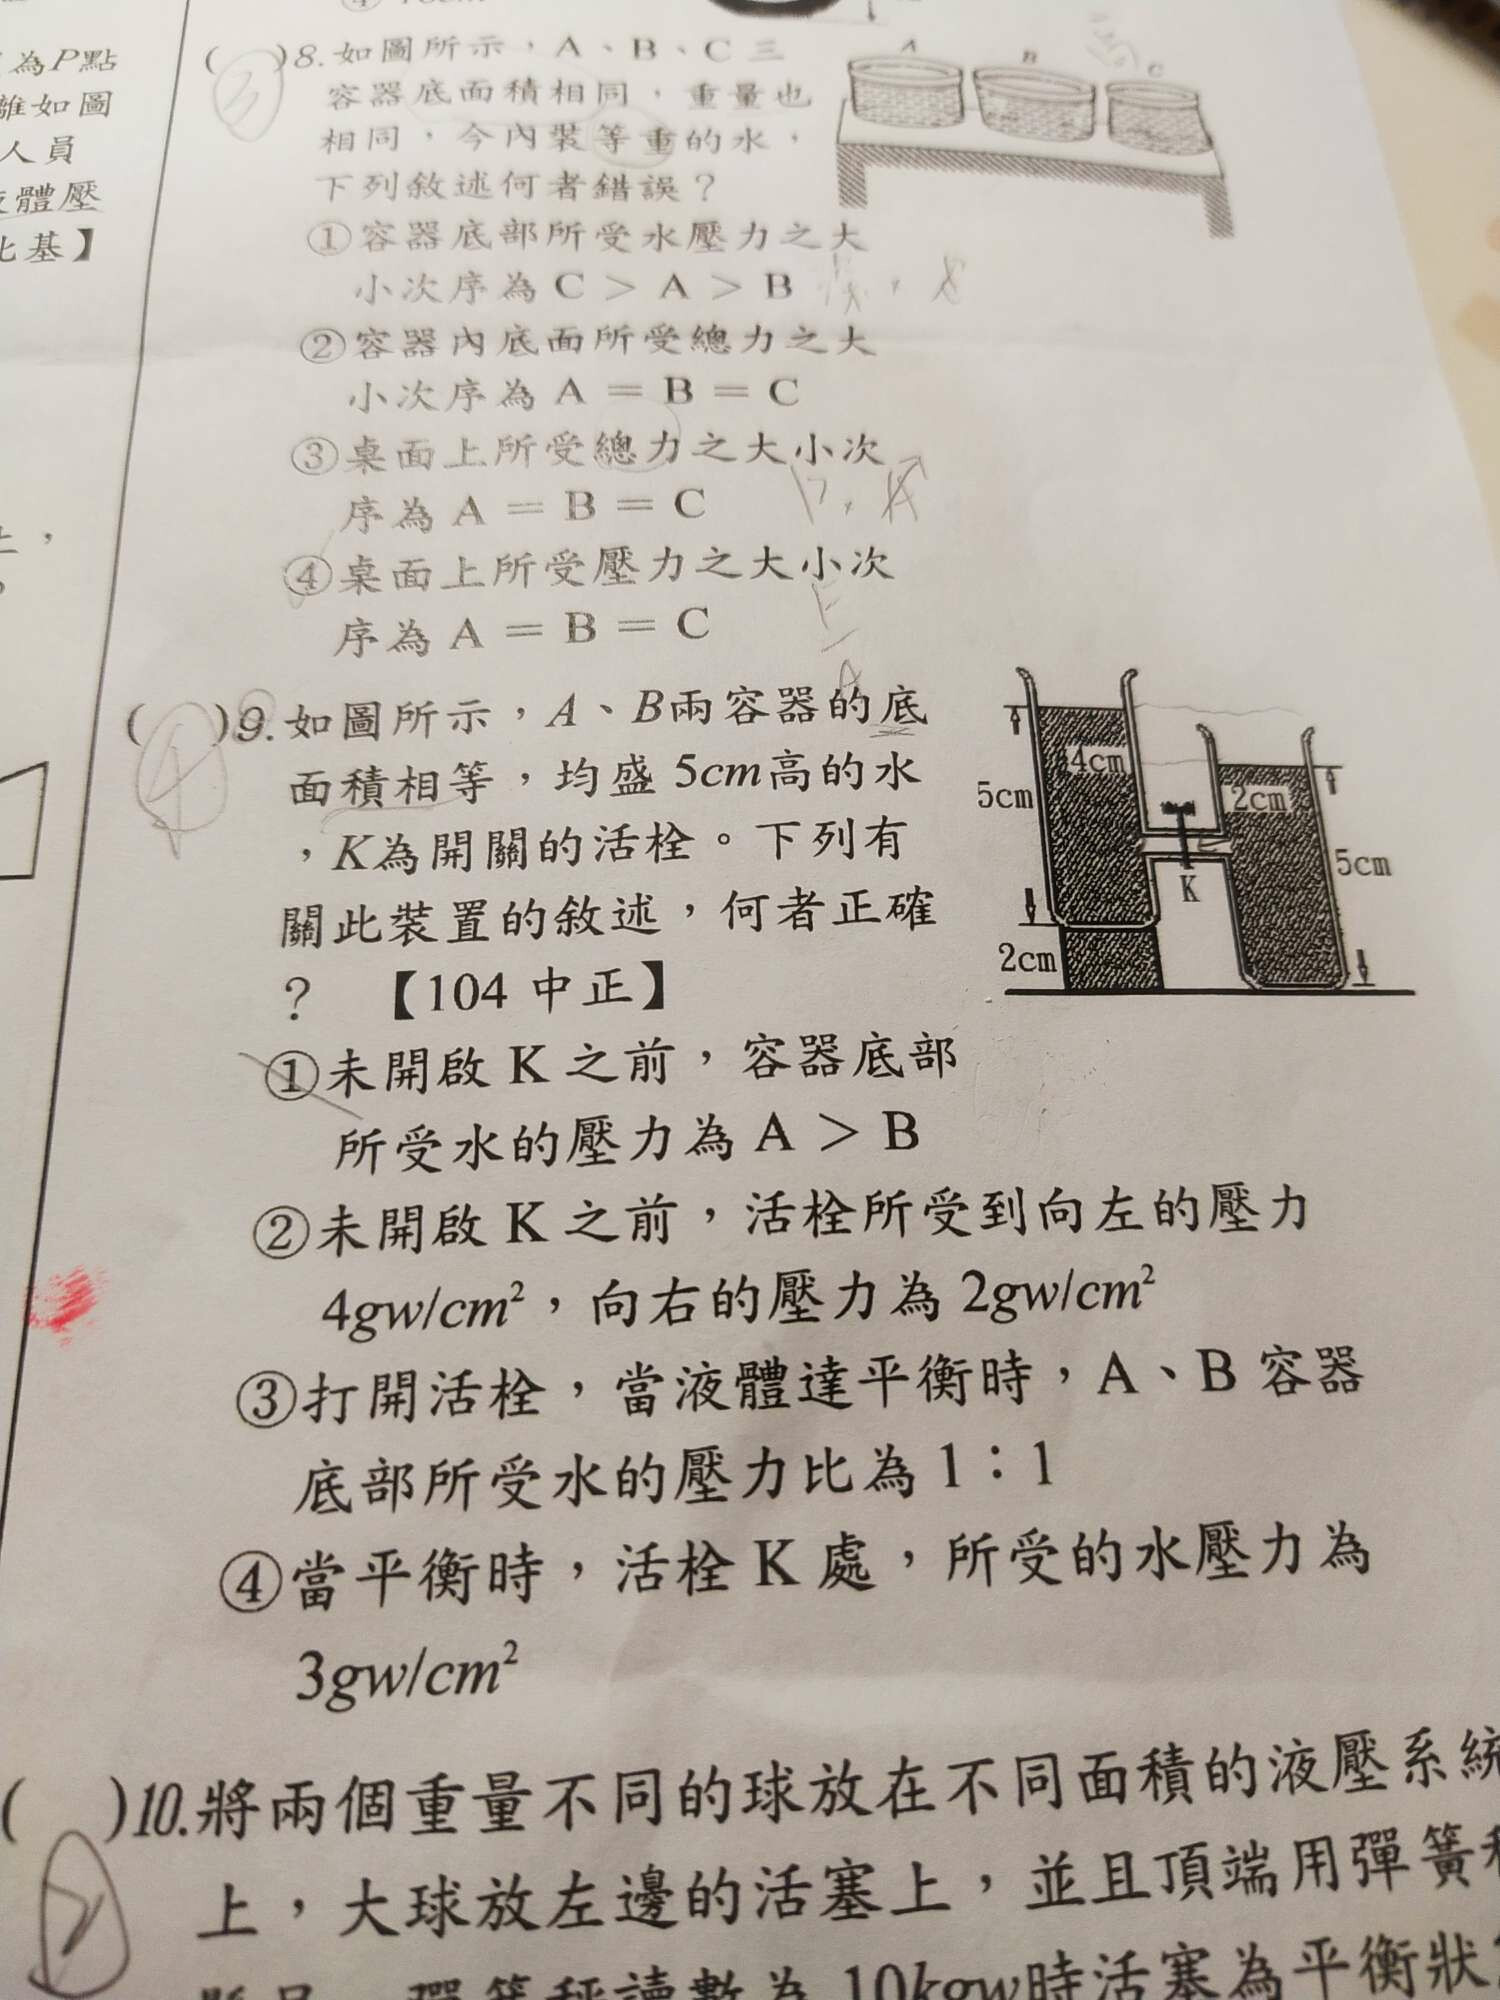 為P點
離如圖
人員
液體壓
比基】
(3)8.如圖所示，A、B、C三
容器底面積相同，重量也
相同，今內裝等重的水，
下列敘述何者錯誤？
①容器底部所受水壓力之大
小次序為C＞A＞B
②容器內底面所受總力之大
小次序為A＝B＝C
③桌面上所受總力之大小次
序為A＝B＝C
④桌面上所受壓力之大小次
序為A＝B＝C
A
B
C
(4)9.如圖所示，A、B兩容器的底
面積相等，均盛5cm高的水
，K為開關的活栓。下列有
關此裝置的敘述，何者正確
？ 【104 中正】
4cm
5cm
2cm
5cm
K
2cm
①未開啟K之前，容器底部
所受水的壓力為A＞B
②未開啟K之前，活栓所受到向左的壓力
4gw/cm²，向右的壓力為2gw/cm²
③打開活栓，當液體達平衡時，A、B容器
底部所受水的壓力比為1：1
④當平衡時，活栓K處，所受的水壓力為
3gw/cm²
(2)10.將兩個重量不同的球放在不同面積的液壓系統
上，大球放左邊的活塞上，並且頂端用彈簧秤
10kgw時活塞為平衡狀